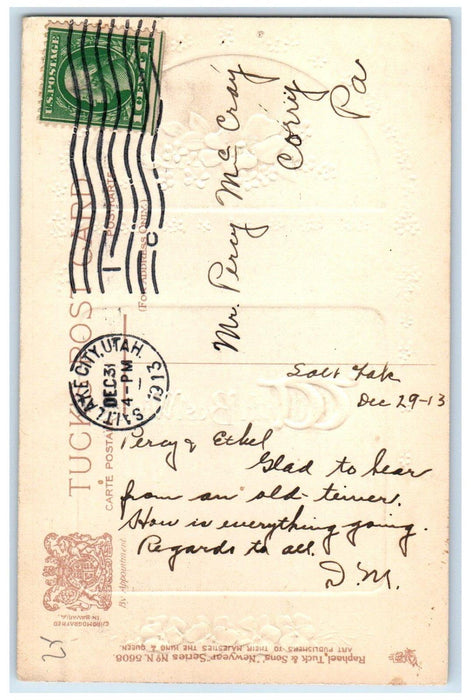 U.S. POSTAGE
1 CENT 1
TUCK'S POST CARD
CARTE POSTALE
POSTKARTE
(For Address Only.)
SALT LAKE CITY, UTAH.
DEC 31
4-PM
1913
1
C
Mr. Percy McCray
Corry
Pa
Salt Lak
Dec 29-13
Percy & Ethel
Glad to hear
from an old-timer.
How is everything going.
Regards to all.
D M.
By Appointment
CHROMOGRAPHED
IN BAVARIA.
Raphael Tuck & Sons' "Newyear" Series No N. 5608.
ART PUBLISHERS TO THEIR MAJESTIES THE KING & QUEEN.